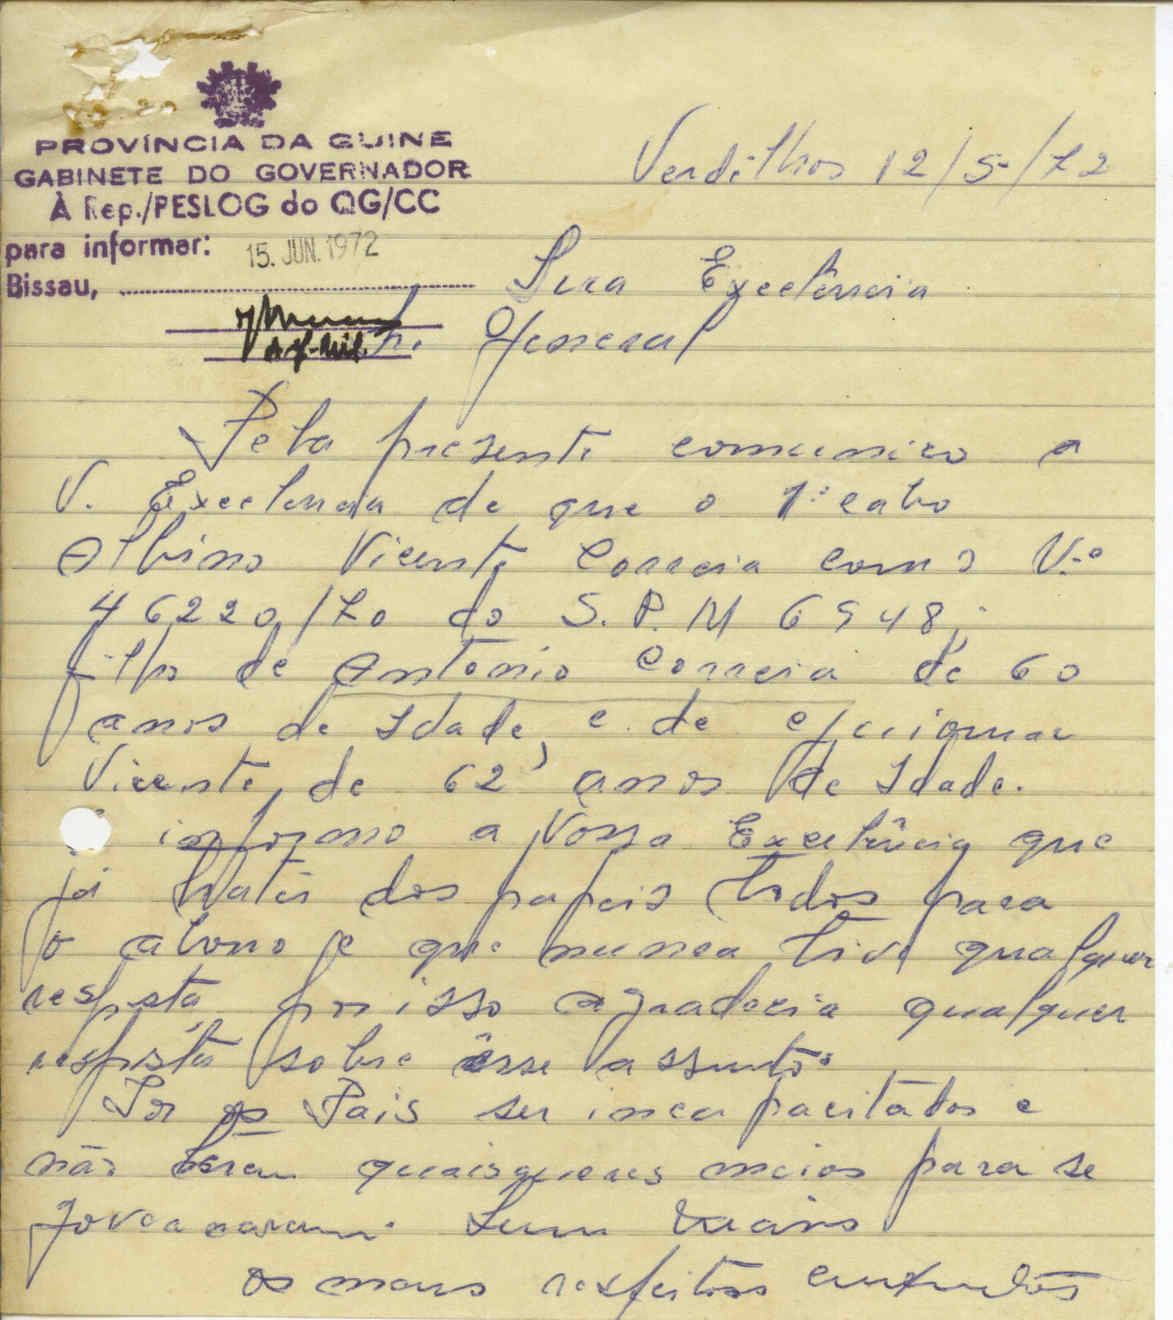 PROVÍNCIA DA GUINE
GABINETE DO GOVERNADOR
À Rep./PESLOG do QG/CC
para informar:
15. JUN. 1972
Bissau,
Verdilhos 12/5-/72
Sera Exelência
General
Pela presente comunico a
V. Exelencia de que o 1º cabo
Albino Vicente Correia com o N.º
46220/70 do S.P.M 6548;
filho de Antonio Correia de 60
anos de Idade, e de
Vicente, de 62 anos de Idade.
informo a Vossa Exelência que
já tratei dos papeis todos para
o abono e que nunca tive qualquer
resposta, por isso agradecia qualquer
resposta sobre êsse assunto.
Por os Pais ser incapacitados e
não terem quaisqueres meios para se
governarem. Sem mais
os meus respeitosos